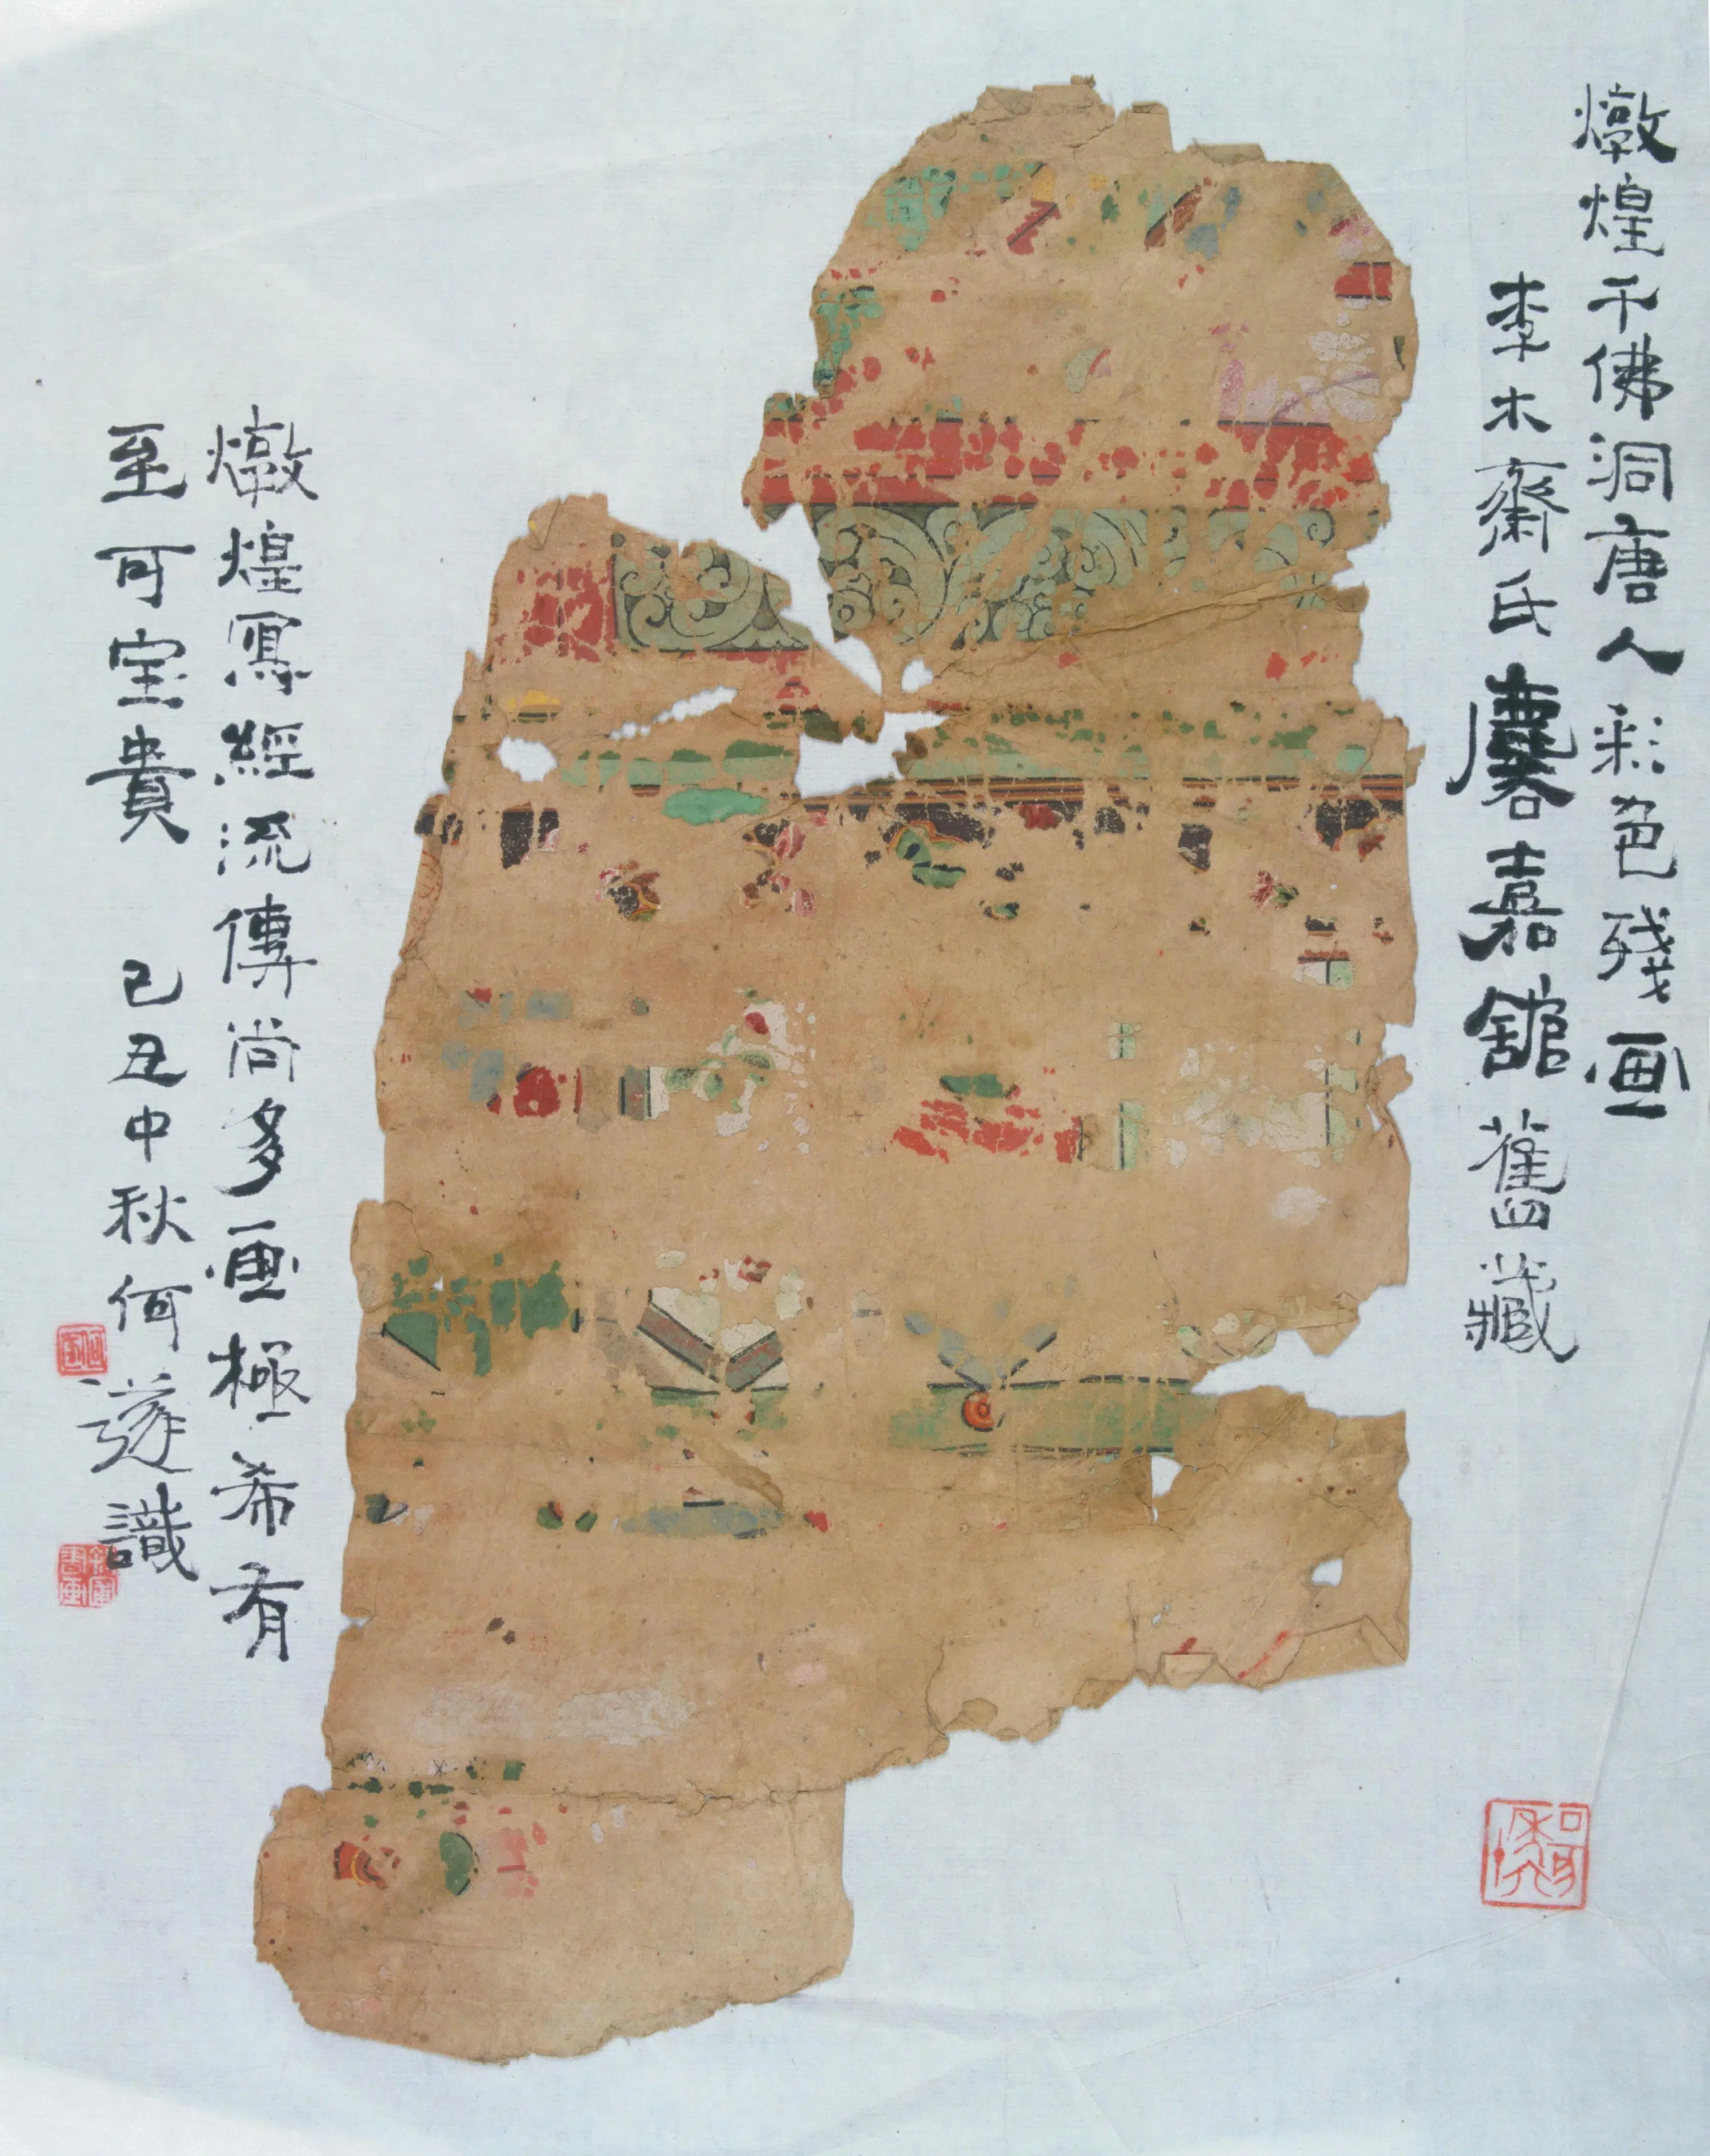 燉煌千佛洞唐人彩色殘画
李木齋氏麐嘉舘舊藏
燉煌寫經流傳尚多画極希有
至可宝貴 己丑中秋何遂識